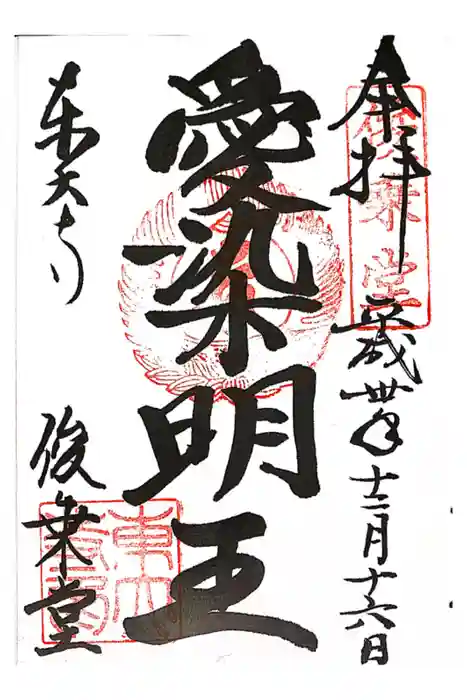 奉拝
俊乗堂
平成卅年十二月十六日
愛染明王
東大寺
俊乗堂